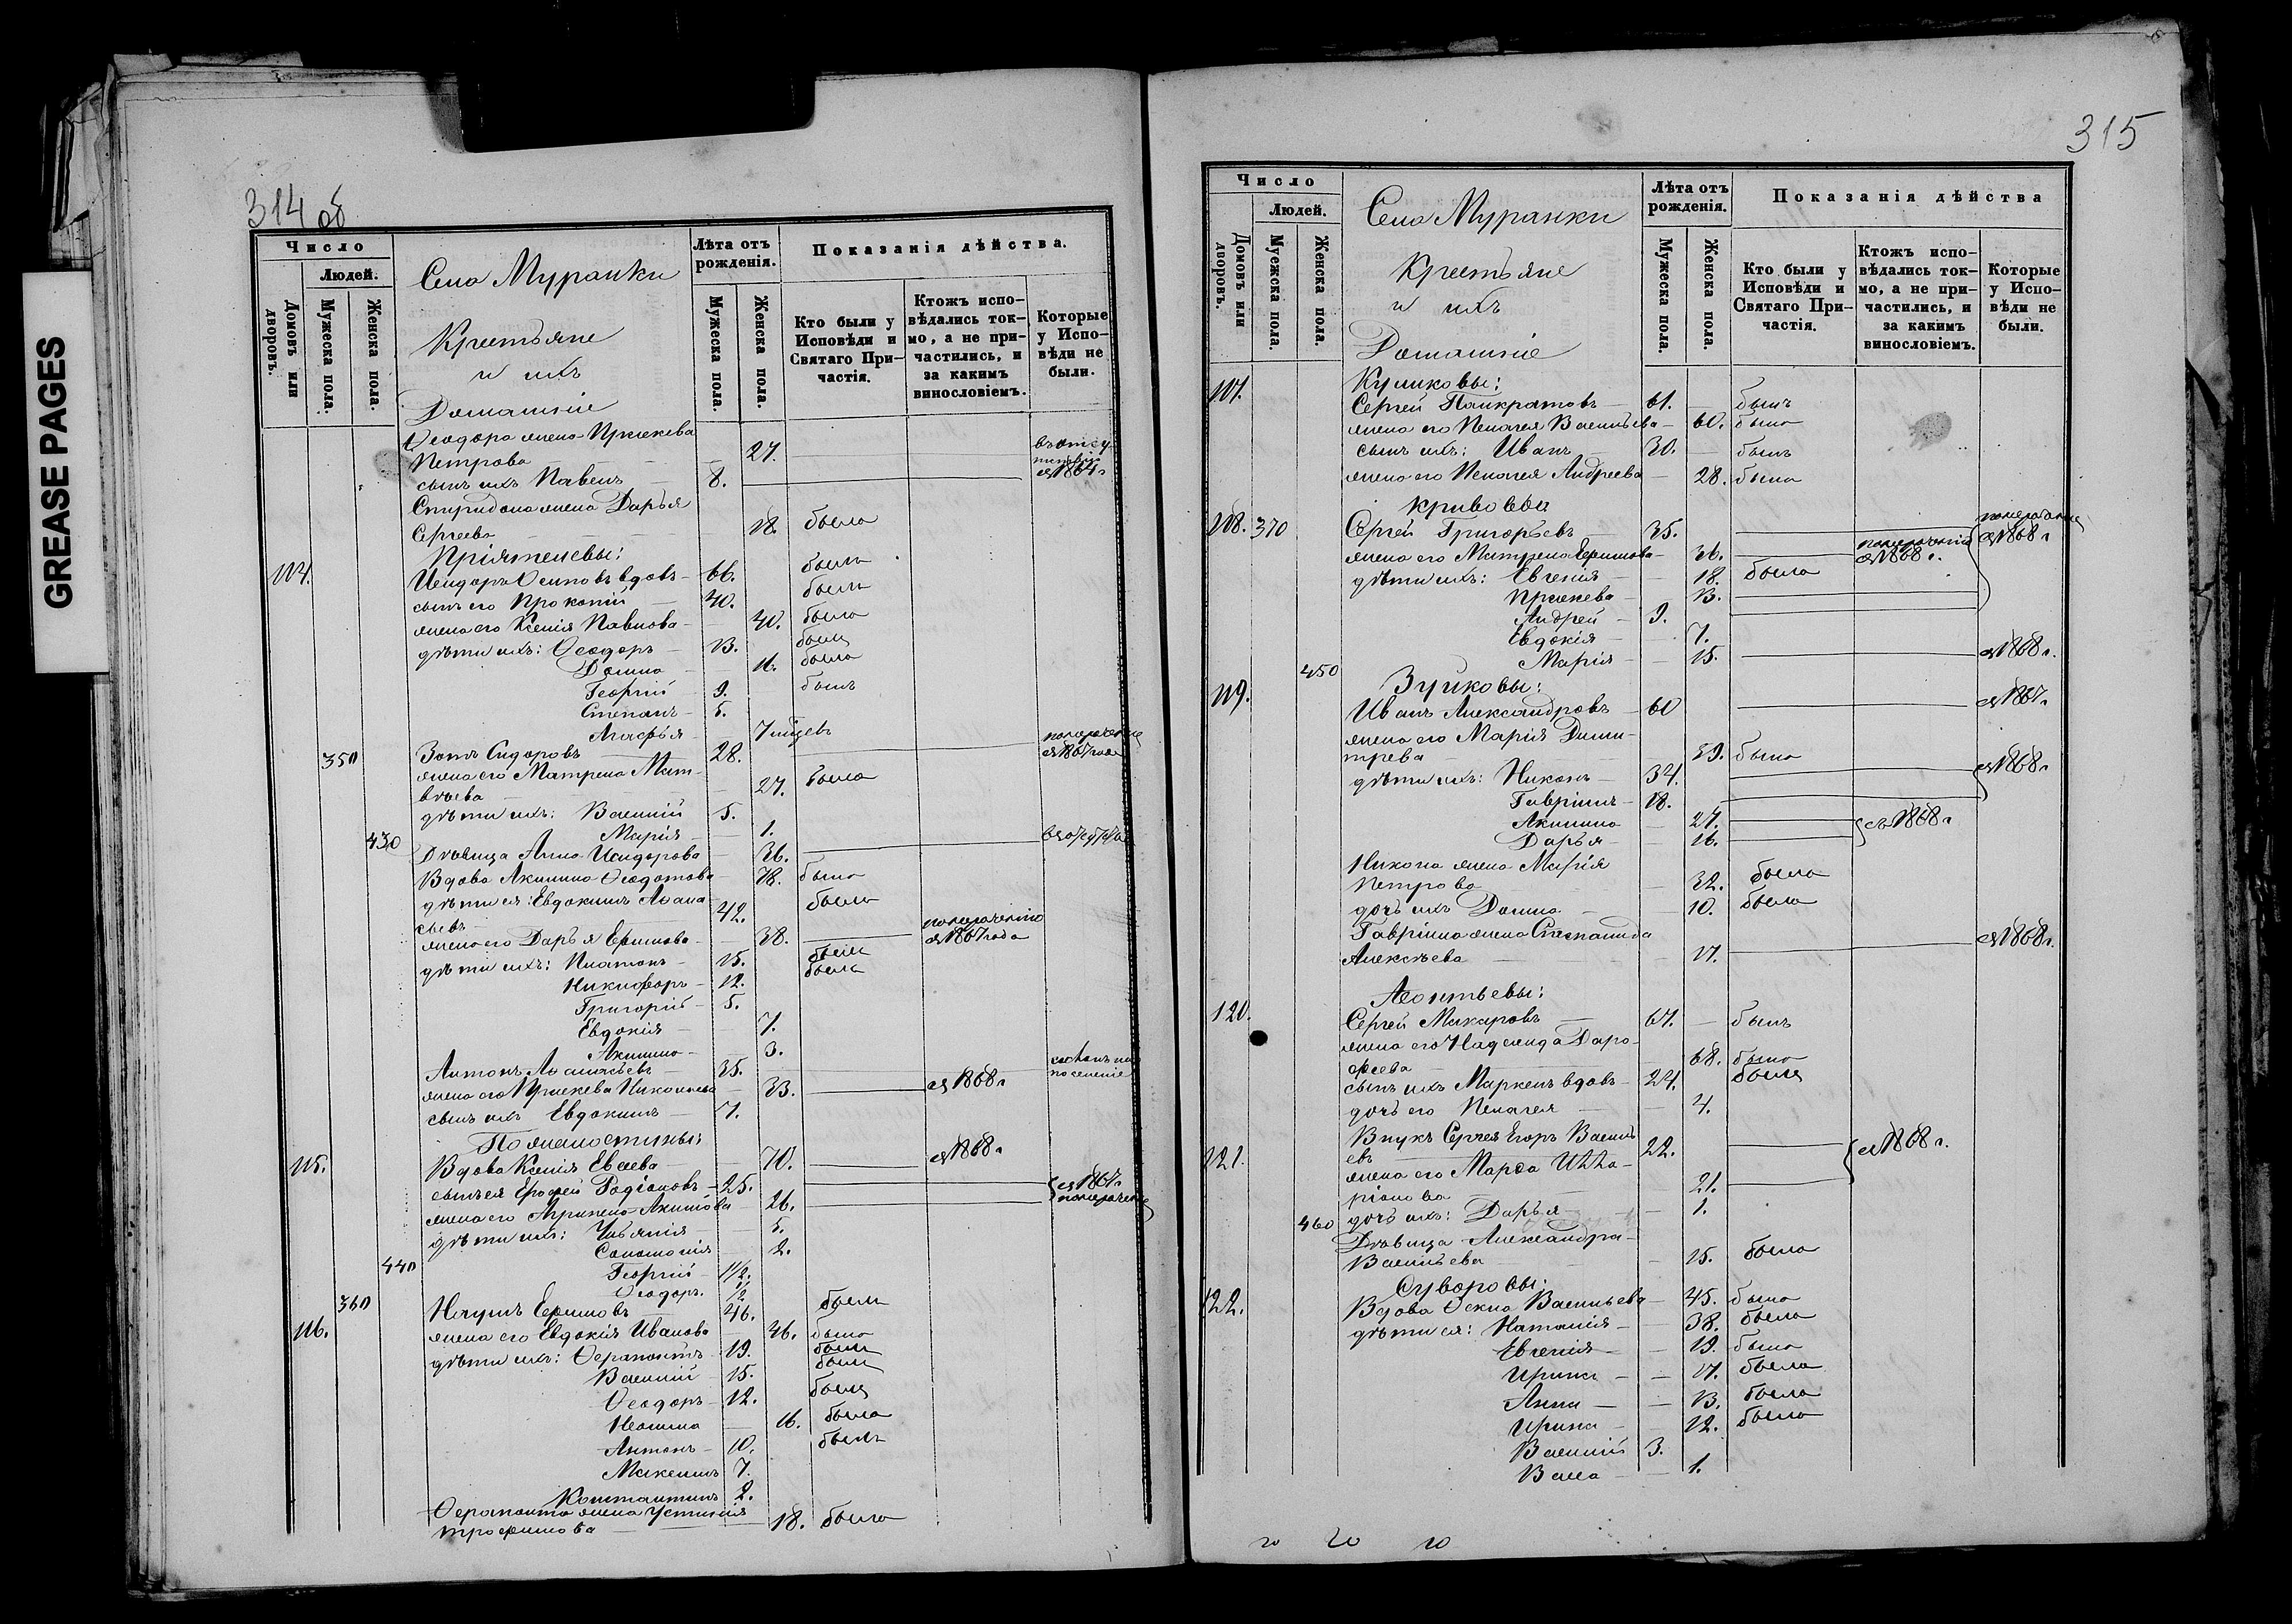 GREASE PAGES
314 об
Число
Людей.
Домовъ или дворовъ.
Мужеска пола.
Женска пола.
Села Муранки
Крестьяне
и ихъ
Домашніе
Лѣта отъ рожденія.
Мужеска пола.
Женска пола.
Показанія дѣйства.
Кто были у Исповѣди и Святаго Причастія.
Ктожъ исповѣдались токмо, а не причастились, и за какимъ винословіемъ.
Которые у Исповѣди не были.
Ѳеодора жена Прасковья
Петрова 27.
сынъ ихъ Павелъ 8. съ 1864 г
Спиридона жена Дарья
Сергѣева 18. была
Пріятелевы:
114. Исидоръ Осиповъ вдовъ 66. былъ
сынъ его Прокопій 40. былъ
жена его Ксенія Павлова 40. была
дѣти ихъ: Ѳеодоръ 13. былъ
Домна 11. была
Георгій 9. былъ
Степанъ 5.
Агафья
350 Зотъ Сидоровъ 28. съ 1867 года
жена его Матрена Мат-
вѣева 27. была
дѣти ихъ: Василій 5.
430 Марія 1.
Дѣвица Анна Исидорова 36.
Вдова Акилина Ѳедотова 78. была
дѣти ея: Евдокимъ Аѳана-
сьевъ 42. былъ
жена его Дарья Ефимова 38. съ 1867 года
дѣти ихъ: Платонъ 15. былъ
Никифоръ 12. былъ
Григорій 5.
Евдокія 7.
Акилина 3.
Антонъ Аѳанасьевъ 35. поселеніе
жена его Прасковья Николаева 33. съ 1868 г
сынъ ихъ Евдокимъ 7.
115. Вдова Ксенія Евсеева 70. съ 1868 г
сынъ ея Ерофей Родіоновъ 25.
жена его Агрипена Акимова 26.
дѣти ихъ: Ульянія 5.
Соломонія 2.
440 Георгій 1 1/2.
Ѳеодоръ. 1/2
360 116. Наумъ Ефимовъ 46. былъ
жена его Евдокія Иванова 46. была
дѣти ихъ: Ѳерапонтъ 19. былъ
Василій 15. былъ
Ѳеодоръ 12. былъ
Неонила 16. была
Антонъ 10. былъ
Максимъ 7.
Константинъ 2.
Ѳерапонта жена Устинія
Трофимова 18. была
315
Число
Людей.
Домовъ или дворовъ.
Мужеска пола.
Женска пола.
Села Муранки
Крестьяне
и ихъ
Домашніе
Лѣта отъ рожденія.
Мужеска пола.
Женска пола.
Показанія дѣйства
Кто были у Исповѣди и Святаго Причастія.
Ктожъ исповѣдались токмо, а не причастились, и за какимъ винословіемъ.
Которые у Исповѣди не были.
Куликовы:
117. Сергѣй Панкратовъ 61. былъ
жена его Пелагея Васильева 60. была
сынъ ихъ: Иванъ 30. былъ
жена его Пелагея Андреева 28. была
Кривовы
118. 370 Сергѣй Григорьевъ 35. съ 1868 г
жена его Матрена Ефимова 36. съ 1868 г.
дѣти ихъ: Евгенія 18. была
Прасковья 13.
Андрей 9.
Евдокія 7.
450 Марія 15. съ 1868 г.
Зуйковы:
119. Иванъ Александровъ 60 съ 1867 г.
жена его Марія Дими-
трева 59. была
дѣти ихъ: Никонъ 34. съ 1868 г
Гавріилъ 18.
Акилина 27. съ 1868 г
Дарья 16.
Никона жена Марія
Петрова 32. была
дочь ихъ Домна 10. была
Гавріила жена Степанида
Алексѣева 17. съ 1868 г.
Леонтьевы:
120. Сергѣй Макаровъ 67. былъ
жена его Надежда Доро-
феева 68. была
сынъ ихъ Маркелъ вдовъ 24. былъ
дочь его Пелагея 4.
121. Внукъ Сергѣя Егоръ Василь-
евъ 22. съ 1868 г.
жена его Марѳа Илла-
ріонова 21.
460 дочь ихъ: Дарья 1.
Дѣвица Александра
Васильева 15. была
Суворовы:
122. Вдова Ѳекла Васильева 45. была
дѣти ея: Наталія 38. была
Евгенія 19. была
Ирина 17. была
Анна 13. была
Ирина 12. была
Василій 3.
Васса 1.